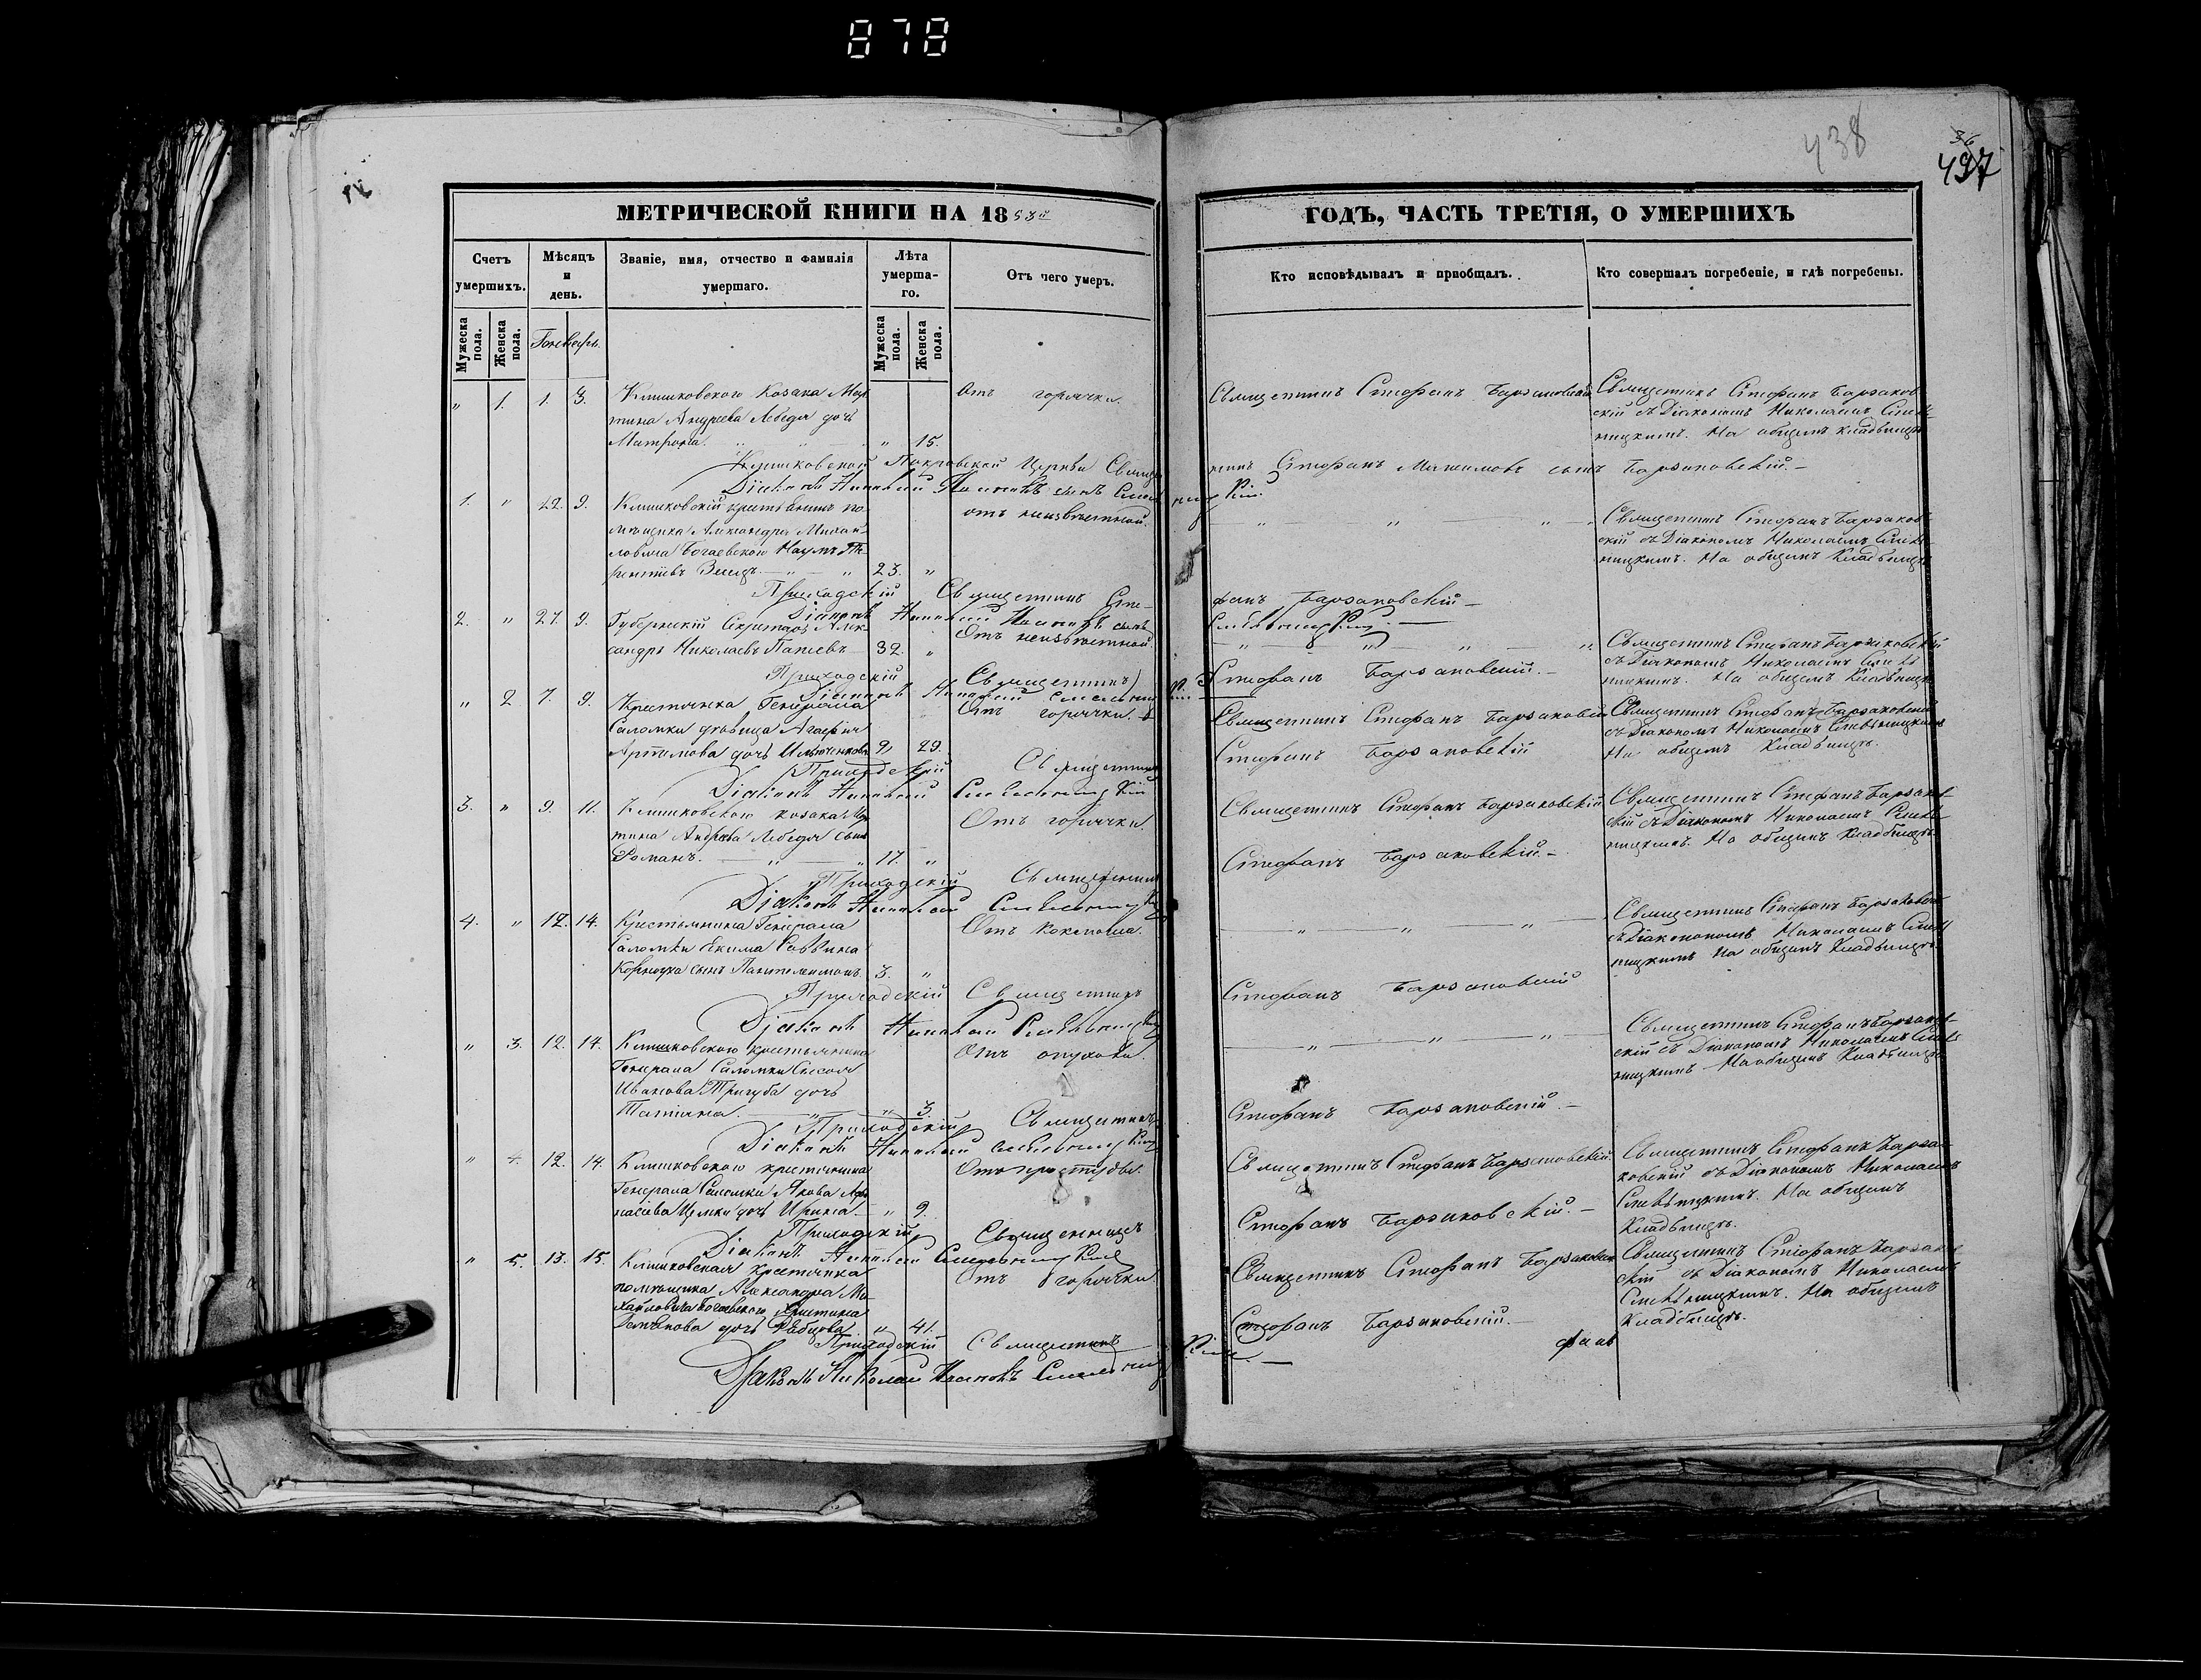 878
438
36
437
МЕТРИЧЕСКОЙ КНИГИ НА 1853й
ГОДЪ, ЧАСТЬ ТРЕТІЯ, О УМЕРШИХЪ
Счетъ умершихъ.
Мѣсяцъ и день.
Званіе, имя, отчество и фамилія умершаго.
Лѣта умершаго.
Отъ чего умеръ.
Кто исповѣдывалъ и пріобщалъ.
Кто совершалъ погребеніе, и гдѣ погребены.
Мужеска пола.
Женска пола.
Генварь.
Мужеска пола.
Женска пола.
" 1. 1. 3. Клишковского Козака Мар
тина Андреева Лебедя дочь
Матрона. " 15.
Отъ горячки.
Священникъ Стефанъ Барзаковскій
Священникъ Стефанъ Барзаков
скій съ Діакономъ Николаемъ
ницкимъ. На общемъ кладбищѣ
Клишковской Покровской Церкви Священ
никъ Стефанъ Максимовъ сынъ Барзаковскій.
Діаконъ Николай сынъ
1. " 22. 9. Клишковскій крестьянинъ по
мѣщика Александра Михай
ловича Богаевского Наумъ Те
рентіевъ 23. "
отъ неизвѣстной.
Священникъ Стефанъ Барзаков
скій съ Діакономъ Николаемъ
ницкимъ. На общемъ Кладбищѣ
Приходскій Священникъ Сте-
фанъ Барзаковскій
Діаконъ Николай сынъ
2. " 27. 9. Губернскій Секретарь Алек
сандръ Николаевъ 32. "
Отъ неизвѣстной.
Священникъ Стефанъ Барзаковскій
съ Діакономъ Николаемъ
ницкимъ. На общемъ Кладбищѣ
Приходскій Священникъ
Стефанъ Барзаковскій.
Діаконъ Николай
" 2 7. 9. Крестьянка Генерала
Саломки дѣвица Агафія
Артемова дочь " 29.
Отъ горячки.
Священникъ Стефанъ Барзаковскій
Священникъ Стефанъ Барзаковскій
съ Діакономъ Николаемъ
На общемъ Кладбищѣ.
Приходскій Священникъ
Стефанъ Барзаковскій
Діаконъ Николай
3. " 9. 11. Клишковского козака Мар
тина Андреева Лебедя сынъ
Романъ. " 17. "
Отъ горячки.
Священникъ Стефанъ Барзаковскій
Священникъ Стефанъ Барзаков
скій съ Діакономъ Николаемъ
ницкимъ. На общемъ Кладбищѣ
Приходскій Священникъ
Стефанъ Барзаковскій.
Діаконъ Николай
4. " 12. 14. Крестьянина Генерала
Саломки Екима Саввина
сынъ Пантелеимонъ 3. "
Отъ коклюша.
Священникъ Стефанъ Барзаковскій
съ Діакономъ Николаемъ
ницкимъ На общемъ Кладбищѣ
Приходскій Священникъ
Стефанъ Барзаковскій
Діаконъ Николай
" 3. 12. 14. Клишковского крестьянина
Генерала Саломки Сысоя
Иванова Тригуба дочь
Татіана. " 3.
Отъ опухоли.
Священникъ Стефанъ Барзаков
скій съ Діакономъ Николаемъ
ницкимъ На общемъ Кладбищѣ
Приходскій Священникъ
Стефанъ Барзаковскій.
Діаконъ Николай
" 4. 12. 14. Клишковского крестьянина
Генерала Саломки Якова Афа
насіева дочь Ирина. " 9.
Отъ простуды.
Священникъ Стефанъ Барзаковскій
Священникъ Стефанъ Барза-
ковскій съ Діакономъ Николаемъ
На общемъ
Кладбищѣ.
Приходскій Священникъ
Стефанъ Барзаковскій.
Діаконъ Николай
" 5. 13. 15. Клишковская крестьянка
помѣщика Александра Ми
хайловича Богаевского Христина
дочь " 41.
Отъ горячки.
Священникъ Стефанъ Барзаковскій
Священникъ Стефанъ Барзаков
скій съ Діакономъ Николаемъ
На общемъ
Кладбищѣ.
Приходскій Священникъ
Стефанъ Барзаковскій.
Діаконъ Николай